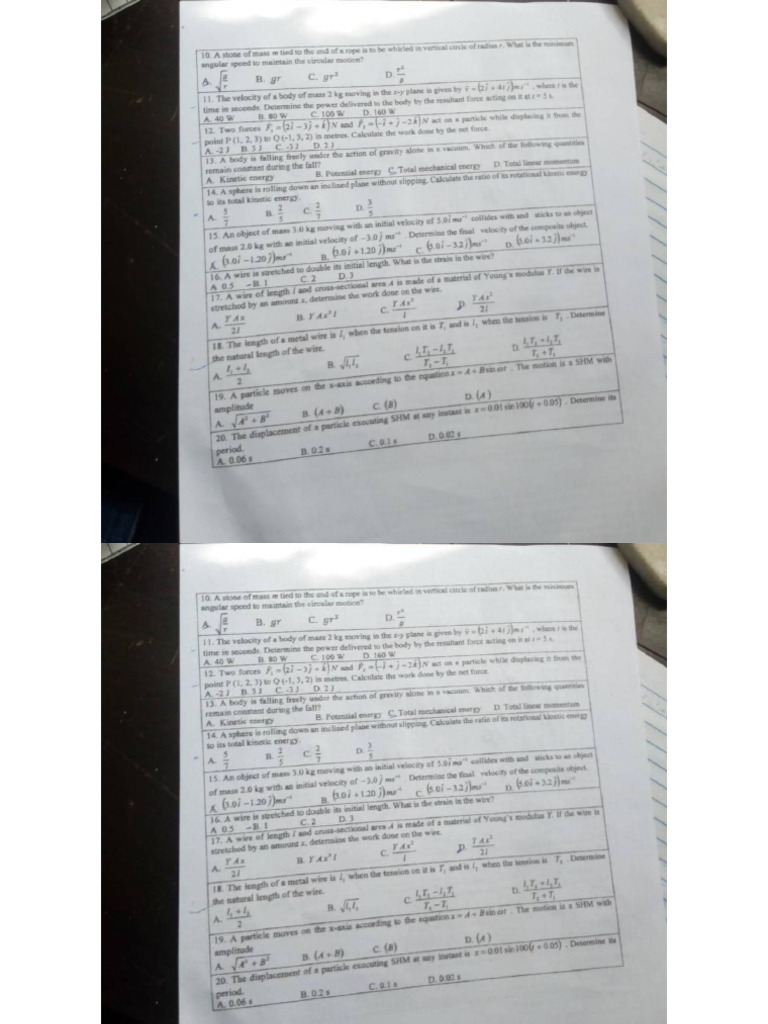 10. A stone of mass m tied to the end of a rope is to be whirled in vertical circle of radius r. What is the minimum
angular speed to maintain the circular motion?
A. √(g/r) B. gr C. gr² D. r²/g
11. The velocity of a body of mass 2 kg moving in the x-y plane is given by v̄ = (2î + 4t ĵ)ms⁻¹, where t is the
time in seconds. Determine the power delivered to the body by the resultant force acting on it at t = 5 s.
A. 40 W B. 80 W C. 100 W D. 160 W
12. Two forces F̄₁ = (2î − 3ĵ + k̂)N and F̄₂ = (−î + ĵ − 2k̂)N act on a particle while displacing it from the
point P (1, 2, 3) to Q (-1, 3, 2) in metres. Calculate the work done by the net force.
A. -2 J B. 3 J C. -3 J D. 2 J
13. A body is falling freely under the action of gravity alone in a vacuum. Which of the following quantities
remain constant during the fall?
A. Kinetic energy B. Potential energy C. Total mechanical energy D. Total linear momentum
14. A sphere is rolling down an inclined plane without slipping. Calculate the ratio of its rotational kinetic energy
to its total kinetic energy.
A. 5/7 B. 2/5 C. 2/7 D. 3/5
15. An object of mass 3.0 kg moving with an initial velocity of 5.0î ms⁻¹ collides with and sticks to an object
of mass 2.0 kg with an initial velocity of −3.0ĵ ms⁻¹. Determine the final velocity of the composite object.
A. (3.0î − 1.20ĵ)ms⁻¹ B. (3.0î + 1.20ĵ)ms⁻¹ C. (5.0î − 3.2ĵ)ms⁻¹ D. (5.0î + 3.2ĵ)ms⁻¹
16. A wire is stretched to double its initial length. What is the strain in the wire?
A 0.5 B. 1 C. 2 D. 3
17. A wire of length l and cross-sectional area A is made of a material of Young's modulus Y. If the wire is
stretched by an amount x, determine the work done on the wire.
A. YAx/2l B. YAx²l C. YAx²/l D. YAx²/2l
18. The length of a metal wire is l₁ when the tension on it is T₁ and is l₂ when the tension is T₂. Determine
the natural length of the wire.
A. (l₁ + l₂)/2 B. √(l₁l₂) C. (l₁T₂ − l₂T₁)/(T₂ − T₁) D. (l₁T₂ + l₂T₁)/(T₂ + T₁)
19. A particle moves on the x-axis according to the equation x = A + B sin ωt. The motion is a SHM with
amplitude
A. √(A² + B²) B. (A + B) C. (B) D. (A)
20. The displacement of a particle executing SHM at any instant is x = 0.01 sin 100(t + 0.05). Determine its
period.
A. 0.06 s B. 0.2 s C. 0.1 s D. 0.02 s
10. A stone of mass m tied to the end of a rope is to be whirled in vertical circle of radius r. What is the minimum
angular speed to maintain the circular motion?
A. √(g/r) B. gr C. gr² D. r²/g
11. The velocity of a body of mass 2 kg moving in the x-y plane is given by v̄ = (2î + 4t ĵ)ms⁻¹, where t is the
time in seconds. Determine the power delivered to the body by the resultant force acting on it at t = 5 s.
A. 40 W B. 80 W C. 100 W D. 160 W
12. Two forces F̄₁ = (2î − 3ĵ + k̂)N and F̄₂ = (−î + ĵ − 2k̂)N act on a particle while displacing it from the
point P (1, 2, 3) to Q (-1, 3, 2) in metres. Calculate the work done by the net force.
A. -2 J B. 3 J C. -3 J D. 2 J
13. A body is falling freely under the action of gravity alone in a vacuum. Which of the following quantities
remain constant during the fall?
A. Kinetic energy B. Potential energy C. Total mechanical energy D. Total linear momentum
14. A sphere is rolling down an inclined plane without slipping. Calculate the ratio of its rotational kinetic energy
to its total kinetic energy.
A. 5/7 B. 2/5 C. 2/7 D. 3/5
15. An object of mass 3.0 kg moving with an initial velocity of 5.0î ms⁻¹ collides with and sticks to an object
of mass 2.0 kg with an initial velocity of −3.0ĵ ms⁻¹ Determine the final velocity of the composite object.
A. (3.0î − 1.20ĵ)ms⁻¹ B. (3.0î + 1.20ĵ)ms⁻¹ C. (5.0î − 3.2ĵ)ms⁻¹ D. (5.0î + 3.2ĵ)ms⁻¹
16. A wire is stretched to double its initial length. What is the strain in the wire?
A 0.5 B. 1 C. 2 D. 3
17. A wire of length l and cross-sectional area A is made of a material of Young's modulus Y. If the wire is
stretched by an amount x, determine the work done on the wire.
A. YAx/2l B. YAx²l C. YAx²/l D. YAx²/2l
18. The length of a metal wire is l₁ when the tension on it is T₁ and is l₂ when the tension is T₂. Determine
the natural length of the wire.
A. (l₁ + l₂)/2 B. √(l₁l₂) C. (l₁T₂ − l₂T₁)/(T₂ − T₁) D. (l₁T₂ + l₂T₁)/(T₂ + T₁)
19. A particle moves on the x-axis according to the equation x = A + B sin ωt. The motion is a SHM with
amplitude
A. √(A² + B²) B. (A + B) C. (B) D. (A)
20. The displacement of a particle executing SHM at any instant is x = 0.01 sin 100(t + 0.05). Determine its
period.
A. 0.06 s B. 0.2 s C. 0.1 s D. 0.02 s